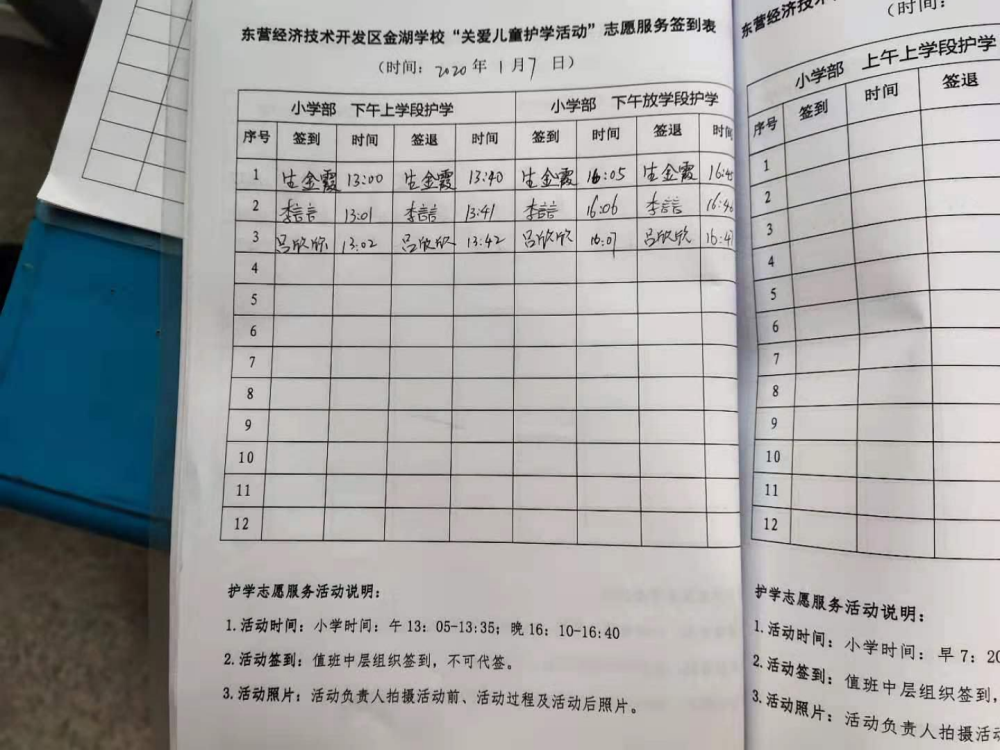 东营经济技术开发区金湖学校“关爱儿童护学活动”志愿服务签到表
（时间：2020年1月7日）
小学部 下午上学段护学 小学部 下午放学段护学
序号 签到 时间 签退 时间 签到 时间 签退 时间
1 生金霞 13:00 生金霞 13:40 生金霞 16:05 生金霞
2 李言言 13:01 李言言 13:41 李言言 16:06 李言言
3 吕欣欣 13:02 吕欣欣 13:42 吕欣欣 16:07 吕欣欣
4
5
6
7
8
9
10
11
12
护学志愿服务活动说明：
1.活动时间：小学时间：午13：05-13:35；晚16：10-16:40
2.活动签到：值班中层组织签到，不可代签。
3.活动照片：活动负责人拍摄活动前、活动过程及活动后照片。
东营经济技术
（时间：
小学部 上午上学段护学
序号 签到 时间 签退
1
2
3
4
5
6
7
8
9
10
11
12
护学志愿服务活动说明：
1.活动时间：小学时间：早7：20
2.活动签到：值班中层组织签到，
3.活动照片：活动负责人拍摄活